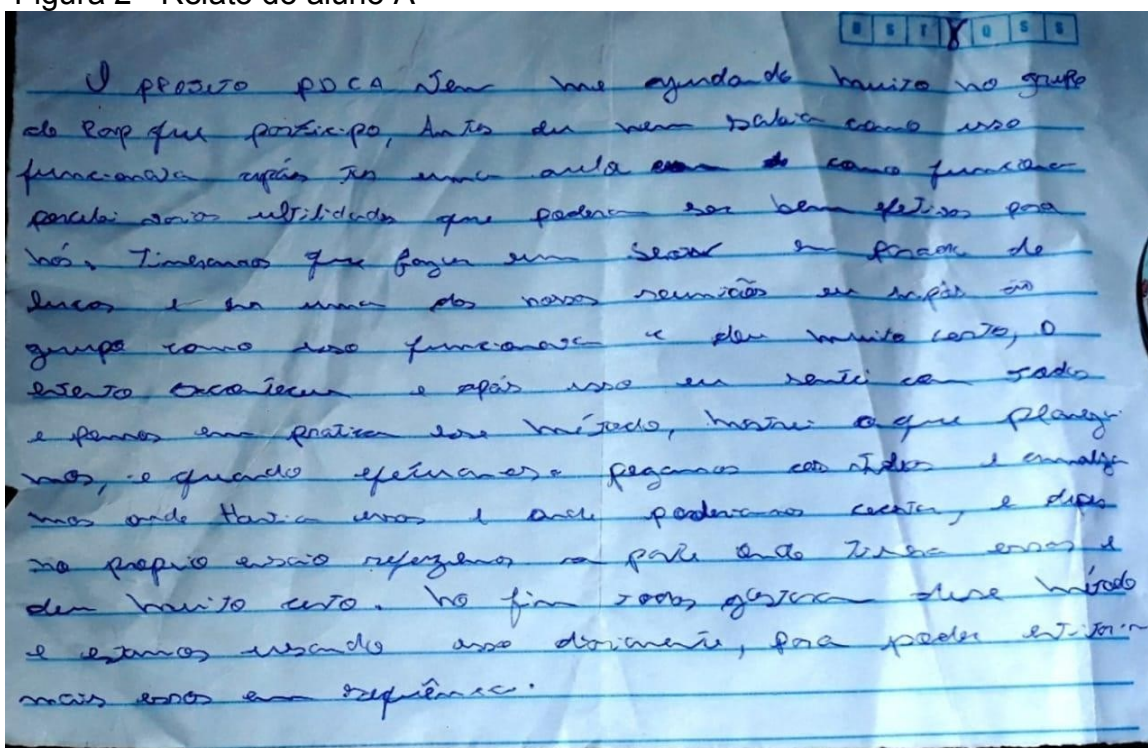 Figura 2 - Relato do aluno A
D S T Q S S
O PROJETO PDCA vem me ajudando muito no grupo
de Rap que participo, Antes eu nem sabia como isso
funcionava após ter uma aula como funciona
percebi varias ultilidades que poderia ser bem efetivos para
nós. Tinhamos que fazer um Show em
e em uma das nossas reuniões eu ao
grupo como isso funcionava e deu muito certo, O
evento aconteceu e após isso eu sentei com todos
e pomos em pratica esse método, mostrei o que planeja
mos, e quando efetuamos pegamos os videos e annaliza
mos onde Havia erros e onde poderiamos acertar, e depois
no propio ensaio refizemos a parte onde Tinha erros e
deu muito certo. No fim todos gostaram desse método
e estamos usando isso diariamente, para poder
mais erros em sequência.